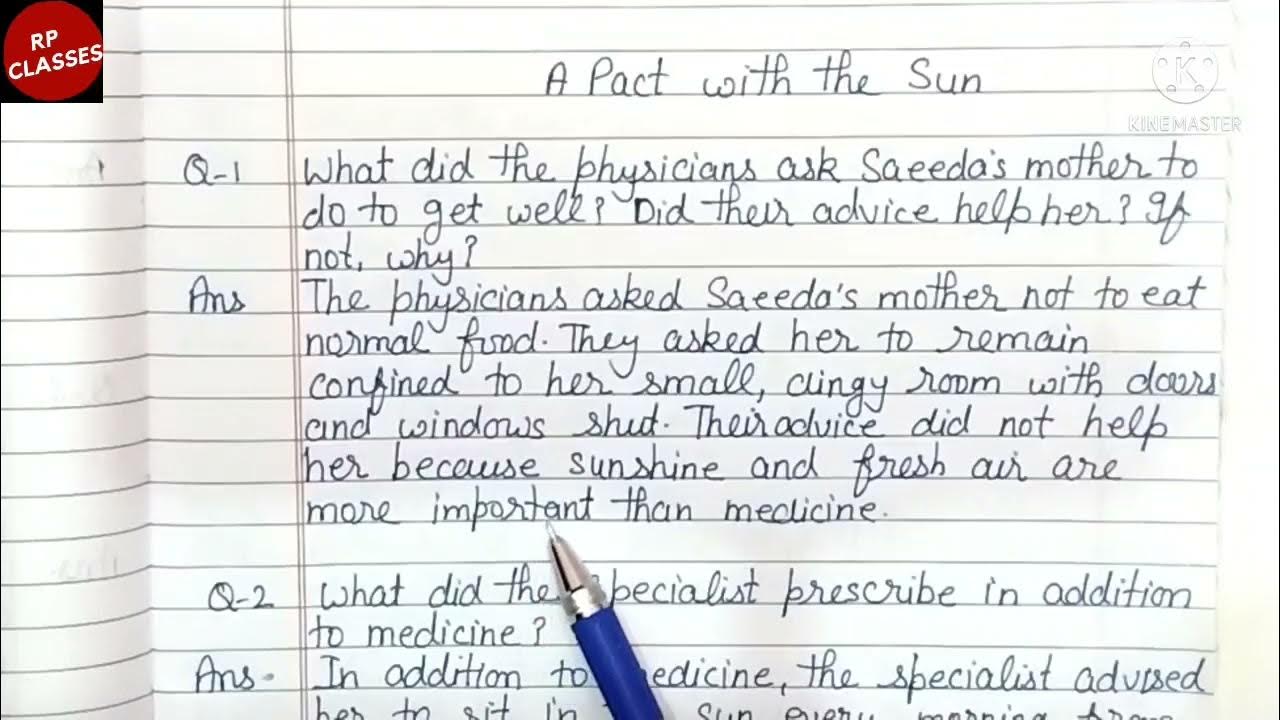 RP
CLASSES
A Pact with the Sun
KINEMASTER
Q-1 What did the physicians ask Saeeda's mother to
do to get well? Did their advice help her? If
not, why?
Ans The physicians asked Saeeda's mother not to eat
normal food. They asked her to remain
confined to her small, dingy room with doors
and windows shut. Their advice did not help
her because sunshine and fresh air are
more important than medicine.
Q-2 What did the specialist prescribe in addition
to medicine?
Ans. In addition to medicine, the specialist advised
her to sit in Sun every morning